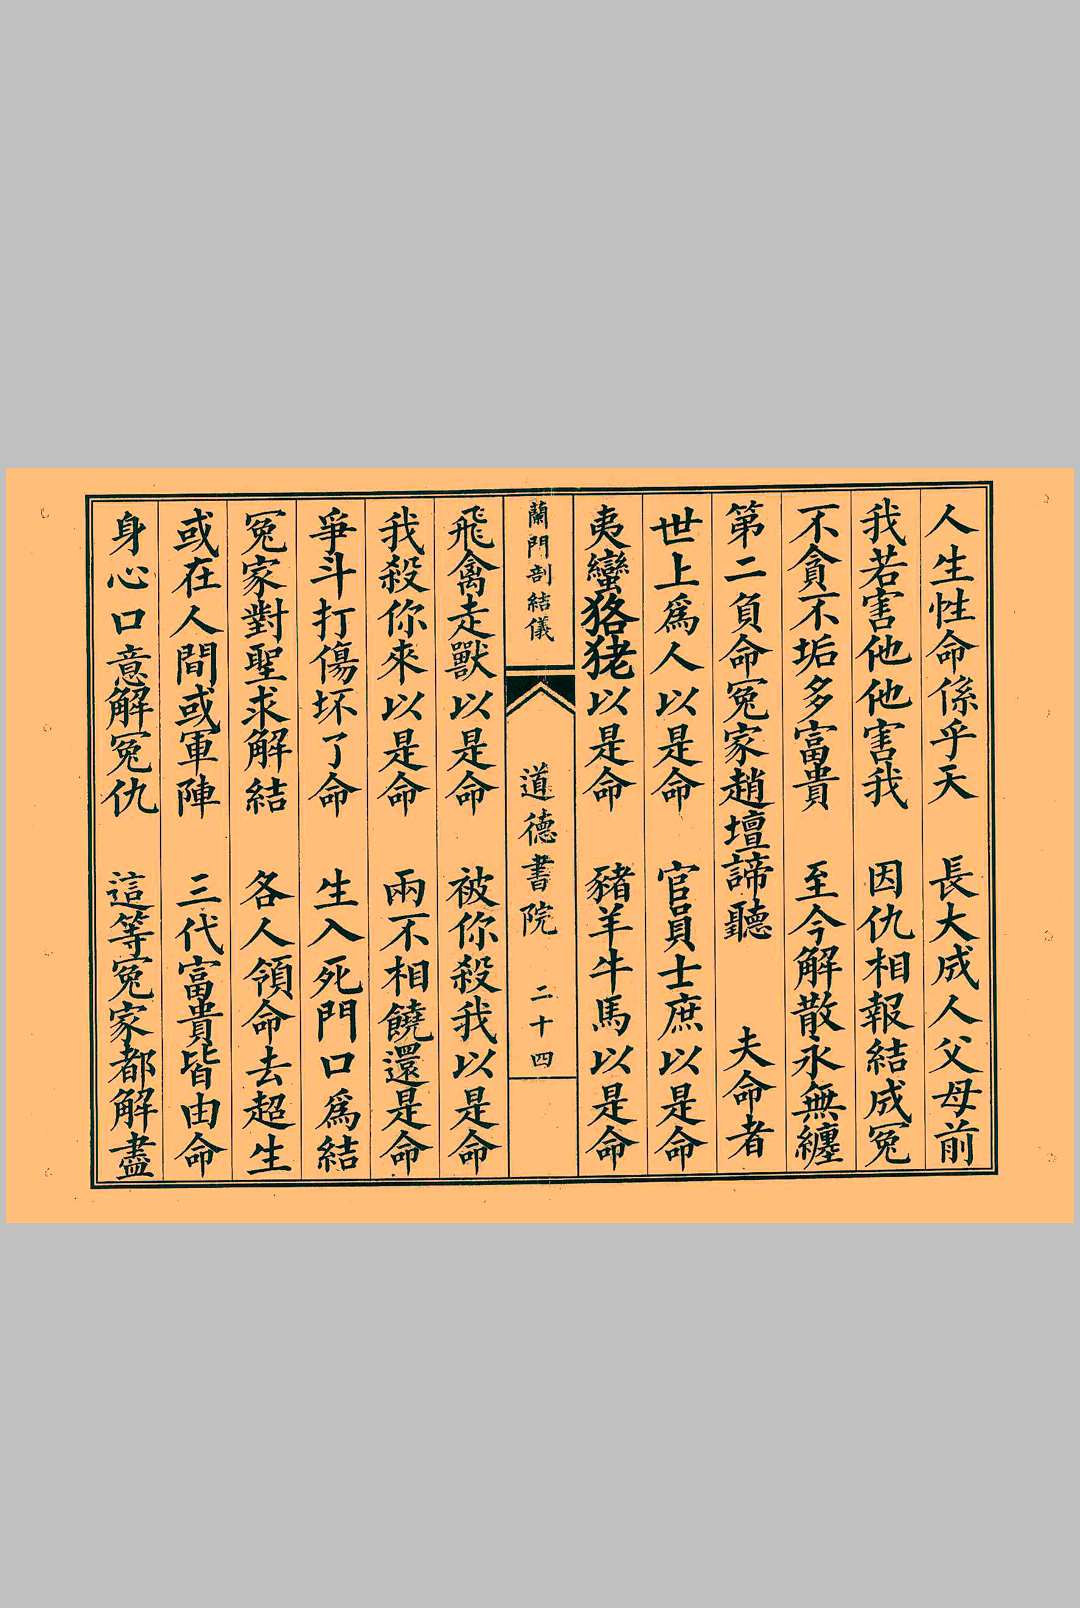 人生性命係乎天 長大成人父母前
我若害他他害我 因仇相報結成冤
不貪不垢多富貴 至今解散永無纏
第二負命冤家趙壇諦聽 夫命者
世上爲人以是命 官員士庶以是命
夷蠻狢狫以是命 豬羊牛馬以是命
蘭門剖結儀 道德書院 二十四
飛禽走獸以是命 被你殺我以是命
我殺你來以是命 兩不相饒還是命
爭斗打傷坏了命 生入死門口爲結
冤家對聖求解結 各人領命去超生
或在人間或軍陣 三代富貴皆由命
身心口意解冤仇 這等冤家都解盡